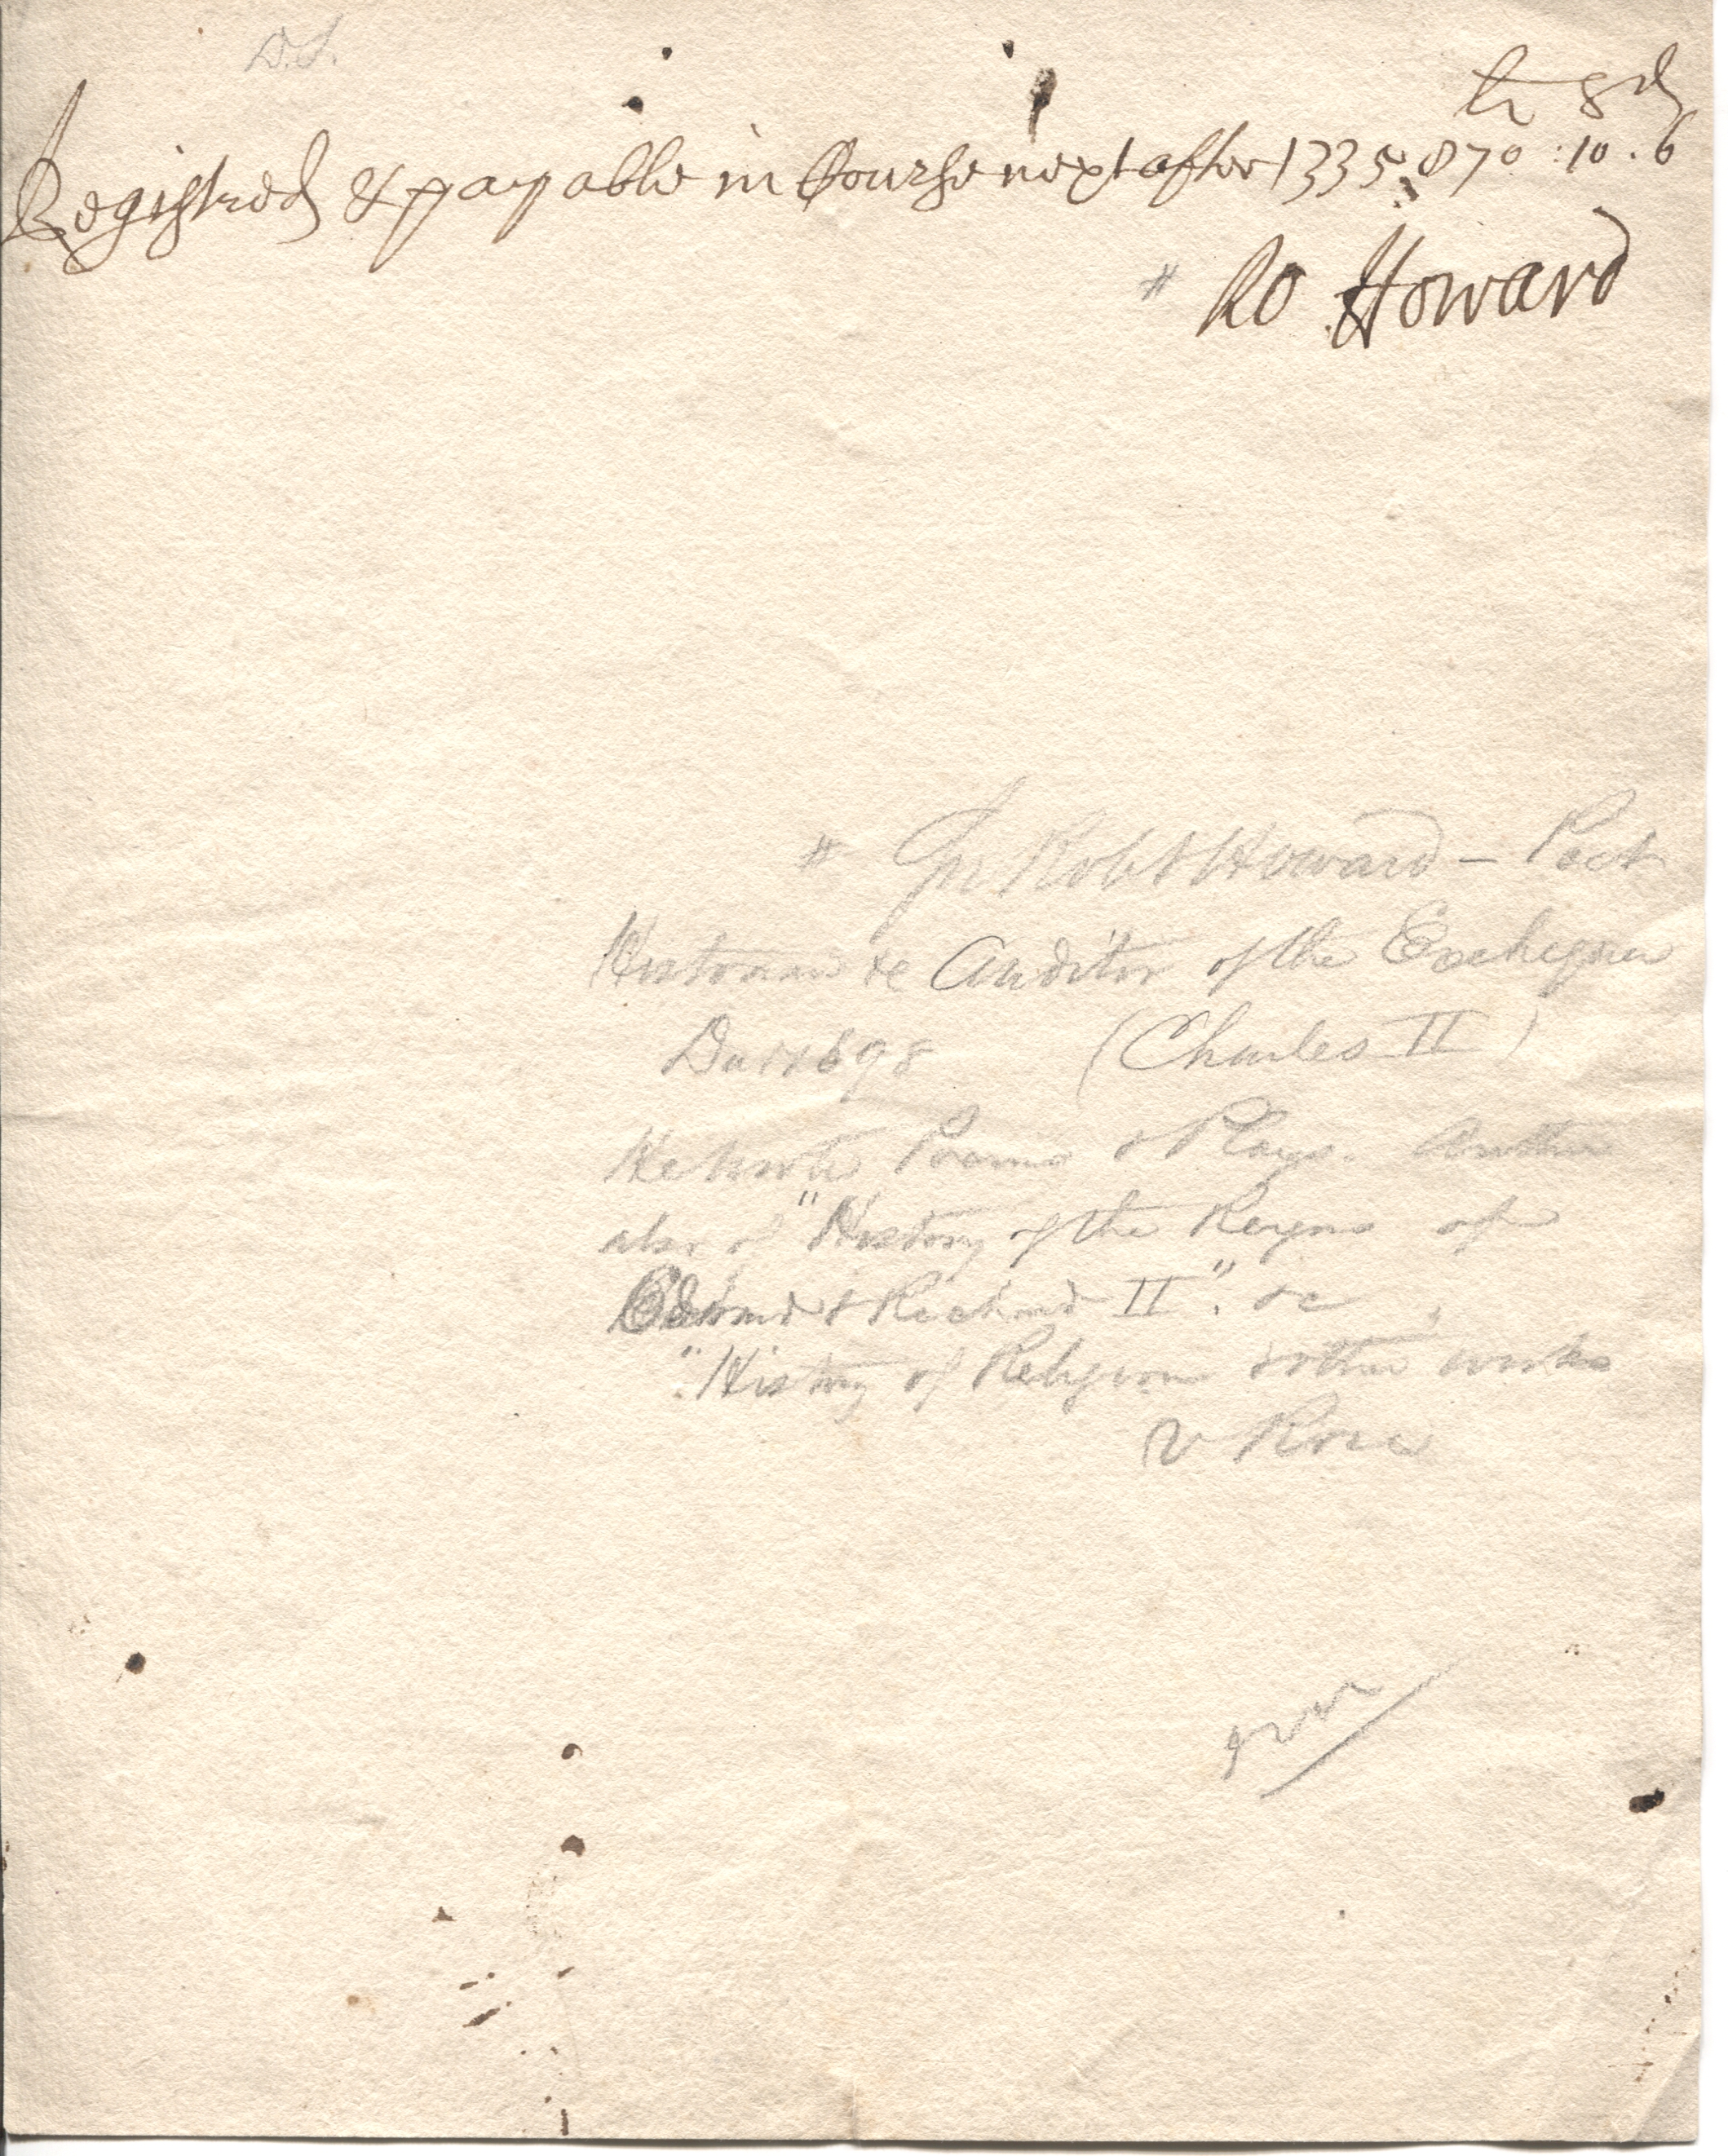 D.S.
li s d
Registred & payable in Course next after 1335870 : 10 . 6
# Ro Howard
# Sir Robt Howard – Poet
Historian &c Auditor of the Exchequer
Died 1698 (Charles II)
He wrote Poems & Plays. Author
also of "History of the Reigns of
Edward & Richard II". &c
"History of Religion & other works
v Rose